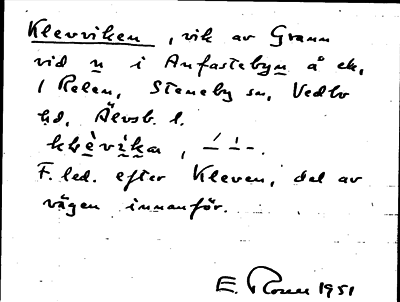 Klevviken, vik av Grann
vid n i Anfastebyn å ek.
1 Relen, Steneby sn, Vedbo
hd, Älvsb. l.
F. led. efter Kleven, del av
vägen innanför.
E. 1951